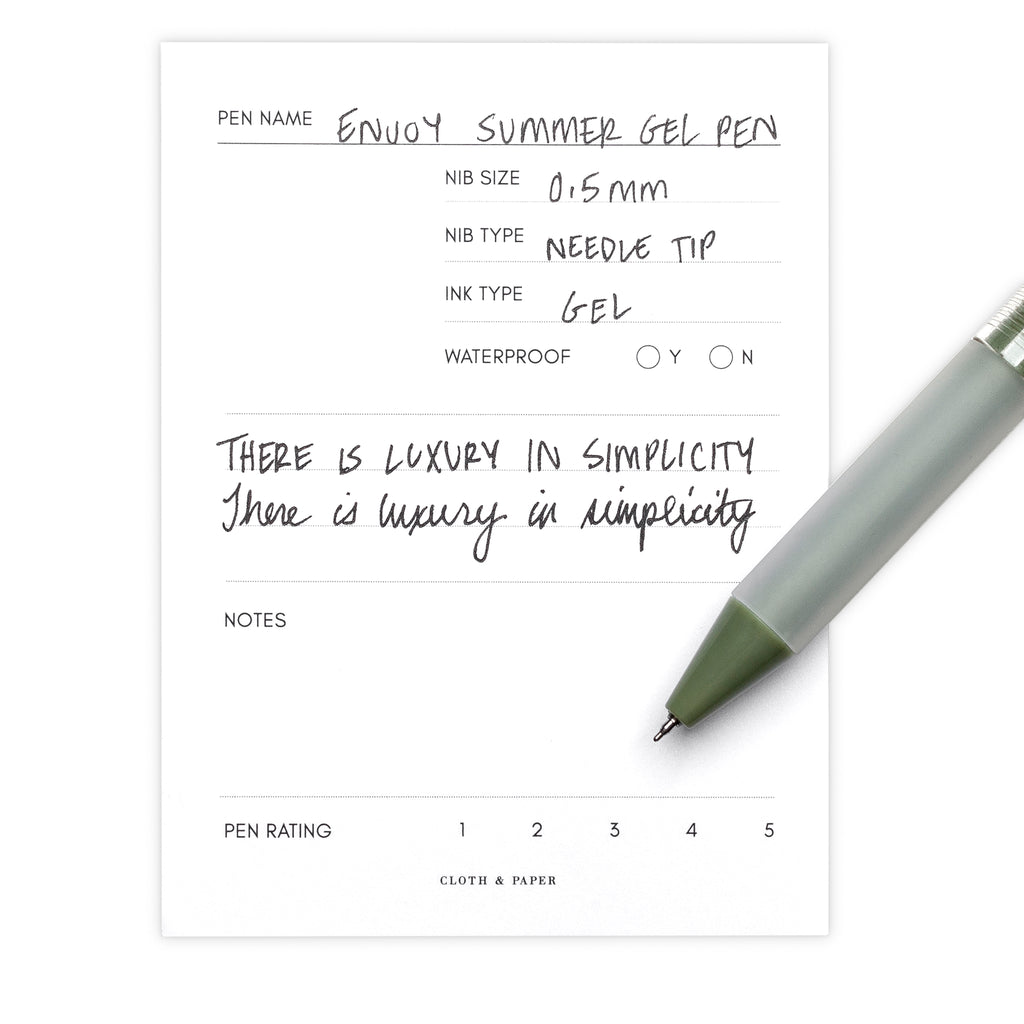 PEN NAME ENJOY SUMMER GEL PEN
NIB SIZE 0.5mm
NIB TYPE NEEDLE TIP
INK TYPE GEL
WATERPROOF Y N
THERE IS LUXURY IN SIMPLICITY
There is luxury in simplicity
NOTES
PEN RATING 1 2 3 4 5
CLOTH & PAPER